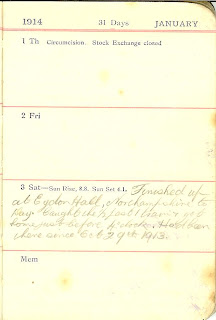 1914 31 Days JANUARY
1 Th Circumcision. Stock Exchange closed
2 Fri
3 Sat—Sun Rise, 8.8. Sun Set 4.1. Finished up
at Eydon Hall, Northamptonshire to
day. Caught the
home just before o'clock. Had been
there since Oct 29th 1913.
Mem